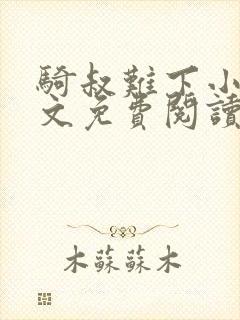 騎叔難下小
文免費閱讀
木蘇蘇木